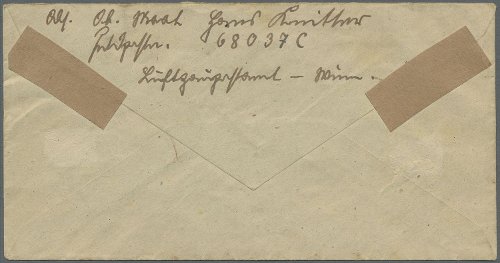 Abs. Ob. Maat Hans Knitter
Feldpostnr. 68037C
Luftgaupostamt – Wien.